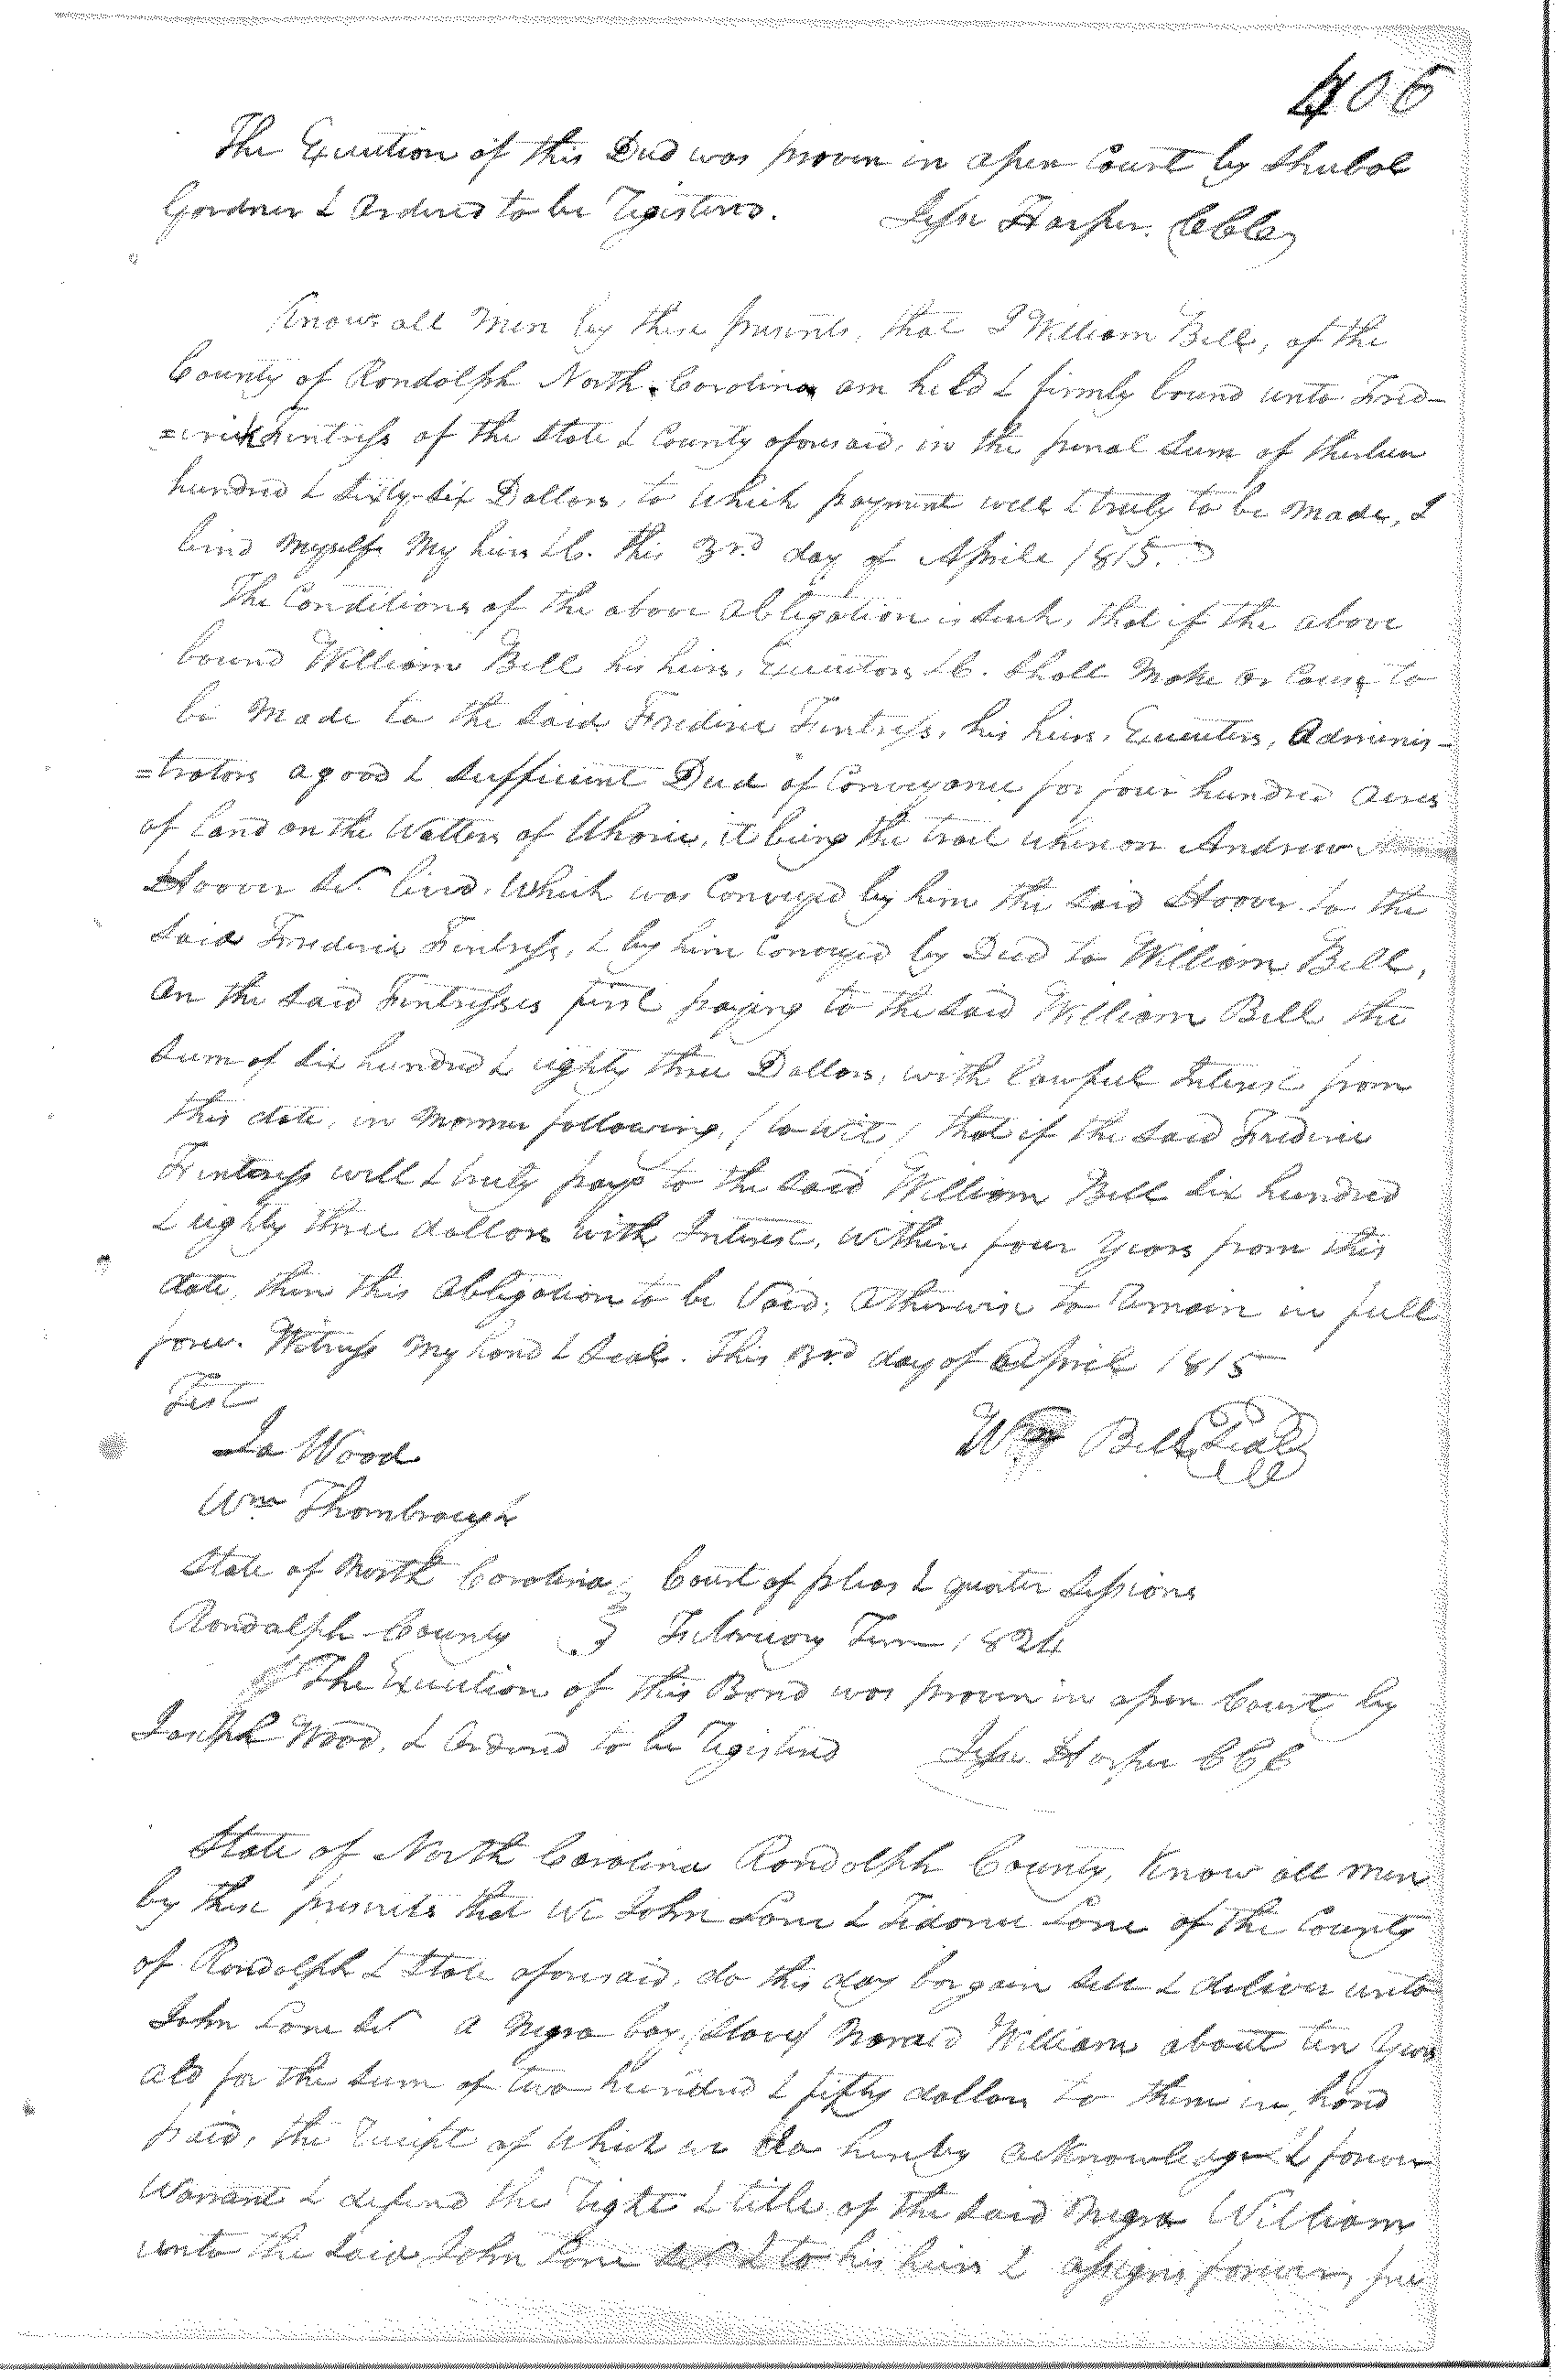 406
The Execution of this Deed was proven in open Court by Shubal
Gardner & Ordered to be Registered. Jesse Harper. CClk
Know all Men by these presents, that I William Bell, of the
County of Randolph North Carolina am held & firmly bound unto Fred-
=erick Fentress of the State & County aforesaid, in the penal Sum of thirteen
hundred & Sixty-Six Dollars, to which payment well & truly to be made, I
bind Myselfe My heirs &c. this 3rd. day of Aprile 1815.
The Conditions of the above obligation is Such, that if the above
bound William Bell his heirs, Executors &c. Shall Make or Cause to
be Made to the Said Frederic Fentress, his heirs, Executers, Adminis-
=trators a good & Sufficient Deed of Conveyance for four hundred Acres
of Land on the Watters of Uharie, it being the tract whereon Andrew
Hoover Sr. lived. Which was Conveyed by him the Said Hoover to the
Said Frederic Fentress, & by him Conveyed by Deed to William Bell,
On the Said Fentresses first paying to the Said William Bell the
Sum of Six hundred & eighty three Dollars, with lawful Interest from
this date, in Manner following, (to wit) that if the Said Frederic
Fentress well & truly pays to the Said William Bell Six hundred
& eighty three dollars with Interest, within four Years from this
date, then this Obligation to be Void; Otherwise to Remain in full
force. Witness My hand & Seal. This 3rd day of Aprile 1815
Test
Jo Wood
Wm Bell Seal
Wm Thornbrough
State of North Carolina } Court of pleas & quarter Sessions
Randolph County } February Term 1824
The Execution of this Bond was proven in open Court by
Joseph Wood, & Ordered to be Registered Jesse Harper CCC
State of North Carolina Randolph County, Know all men
by these presents that We John Lane & Sidonie Lane of the County
of Randolph & State aforesaid, do this day bargain Sell & deliver unto
John Lane Sr. a Negro boy (Slave) Named William about ten Years
old for the Sum of two hundred & fifty dollars to them in hand
paid, the Receipt of which we do hereby acknowledge & forever
Warrant & defend the Right & title of the Said Negro William
unto the Said John Lane Sr & to his heirs & assigns forever, free